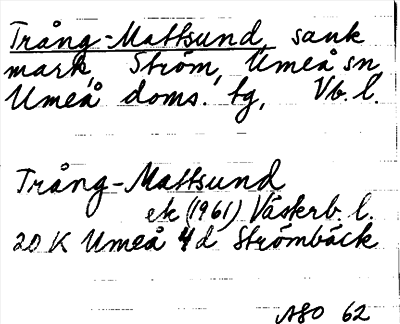 Trång-Mattsund, sank
mark, Ström, Umeå sn
Umeå doms. tg, Vb. l.
Trång-Mattsund
ek (1961) Västerb. l.
20 K Umeå 4 d Strömbäck
ASO 62